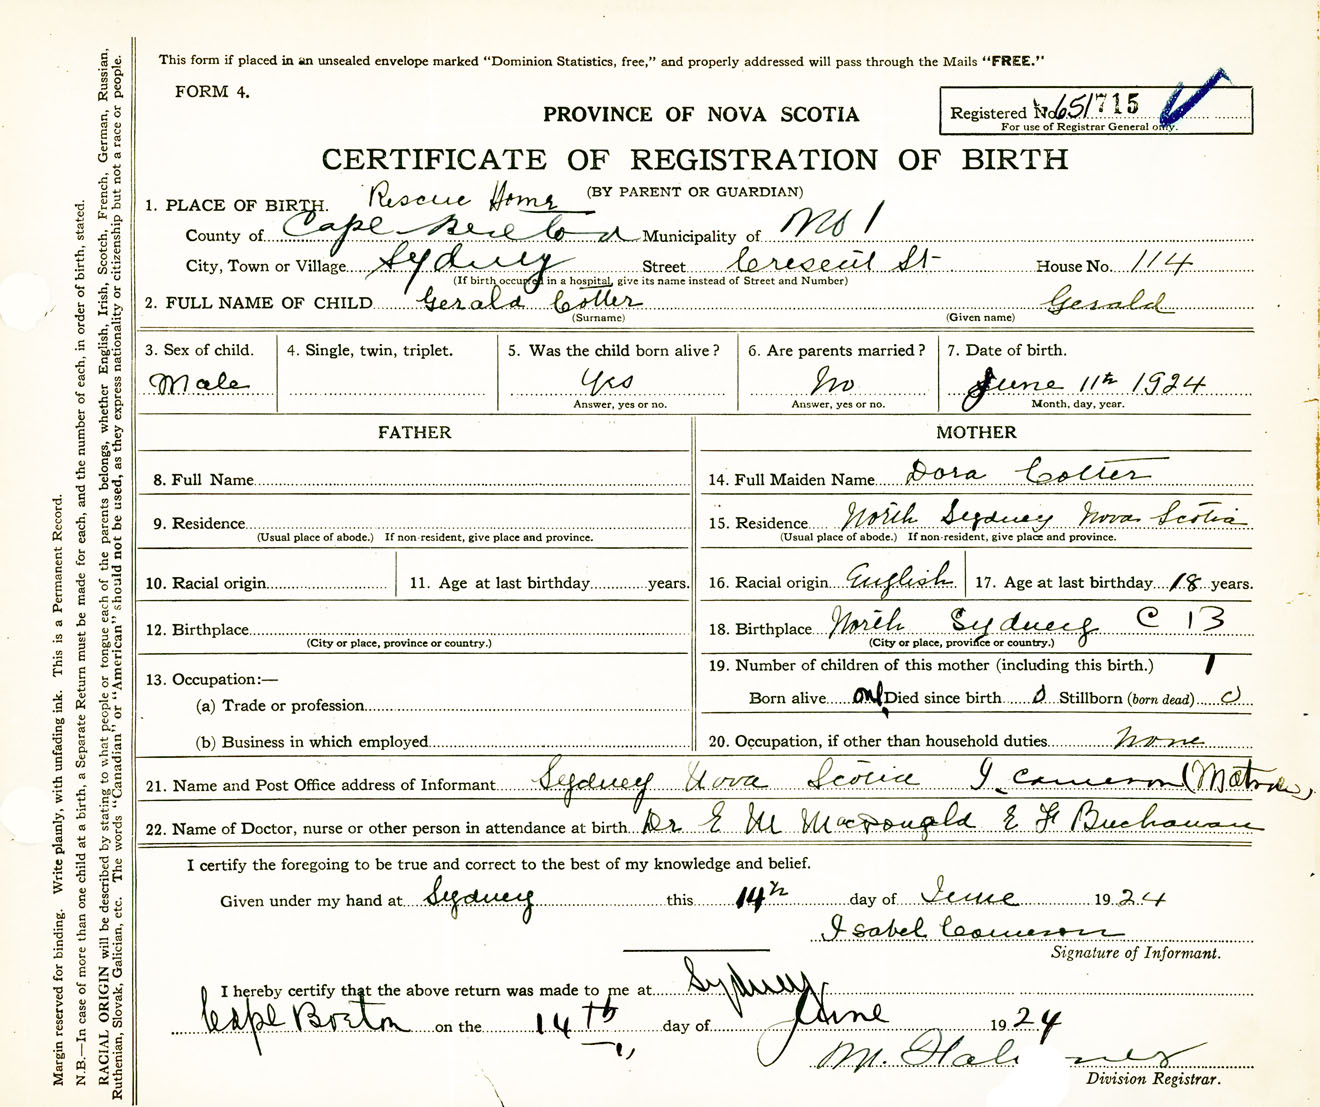 This form if placed in an unsealed envelope marked "Dominion Statistics, free," and properly addressed will pass through the Mails "FREE."
FORM 4.
PROVINCE OF NOVA SCOTIA
Registered No. 651715
For use of Registrar General only.
CERTIFICATE OF REGISTRATION OF BIRTH
(BY PARENT OR GUARDIAN)
1. PLACE OF BIRTH. Rescue Home
County of Cape Breton Municipality of No 1
City, Town or Village Sydney Street Cresent St House No. 114
(If birth occurred in a hospital, give its name instead of Street and Number)
2. FULL NAME OF CHILD Gerald Cotter Gerald
(Surname) (Given name)
3. Sex of child. 4. Single, twin, triplet. 5. Was the child born alive? 6. Are parents married? 7. Date of birth.
Male Yes No June 11th 1924
Answer, yes or no. Answer, yes or no. Month, day, year.
FATHER MOTHER
8. Full Name 14. Full Maiden Name Dora Cotter
9. Residence 15. Residence North Sydney Nova Scotia
(Usual place of abode.) If non-resident, give place and province. (Usual place of abode.) If non-resident, give place and province.
10. Racial origin 11. Age at last birthday years. 16. Racial origin English 17. Age at last birthday 18 years.
12. Birthplace 18. Birthplace North Sydney C B
(City or place, province or country.) (City or place, province or country.)
19. Number of children of this mother (including this birth.) 1
13. Occupation:—
(a) Trade or profession Born alive one Died since birth 0 Stillborn (born dead) 0
(b) Business in which employed 20. Occupation, if other than household duties none
21. Name and Post Office address of Informant Sydney Nova Scotia I Cameron (Matron)
22. Name of Doctor, nurse or other person in attendance at birth. Dr E M MacDonald E F Buchanan
I certify the foregoing to be true and correct to the best of my knowledge and belief.
Given under my hand at Sydney this 14th day of June 1924
Isabel Cameron
Signature of Informant.
I hereby certify that the above return was made to me at Sydney
Cape Breton on the 14th day of June 1924
M.
Division Registrar.
Margin reserved for binding. Write plainly, with unfading ink. This is a Permanent Record.
N.B.—In case of more than one child at a birth, a Separate Return must be made for each, and the number of each, in order of birth, stated.
RACIAL ORIGIN will be described by stating to what people or tongue each of the parents belongs, whether English, Irish, Scotch, French, German, Russian,
Ruthenian, Slovak, Galician, etc. The words "Canadian" or "American" should not be used, as they express nationality or citizenship but not a race or people.